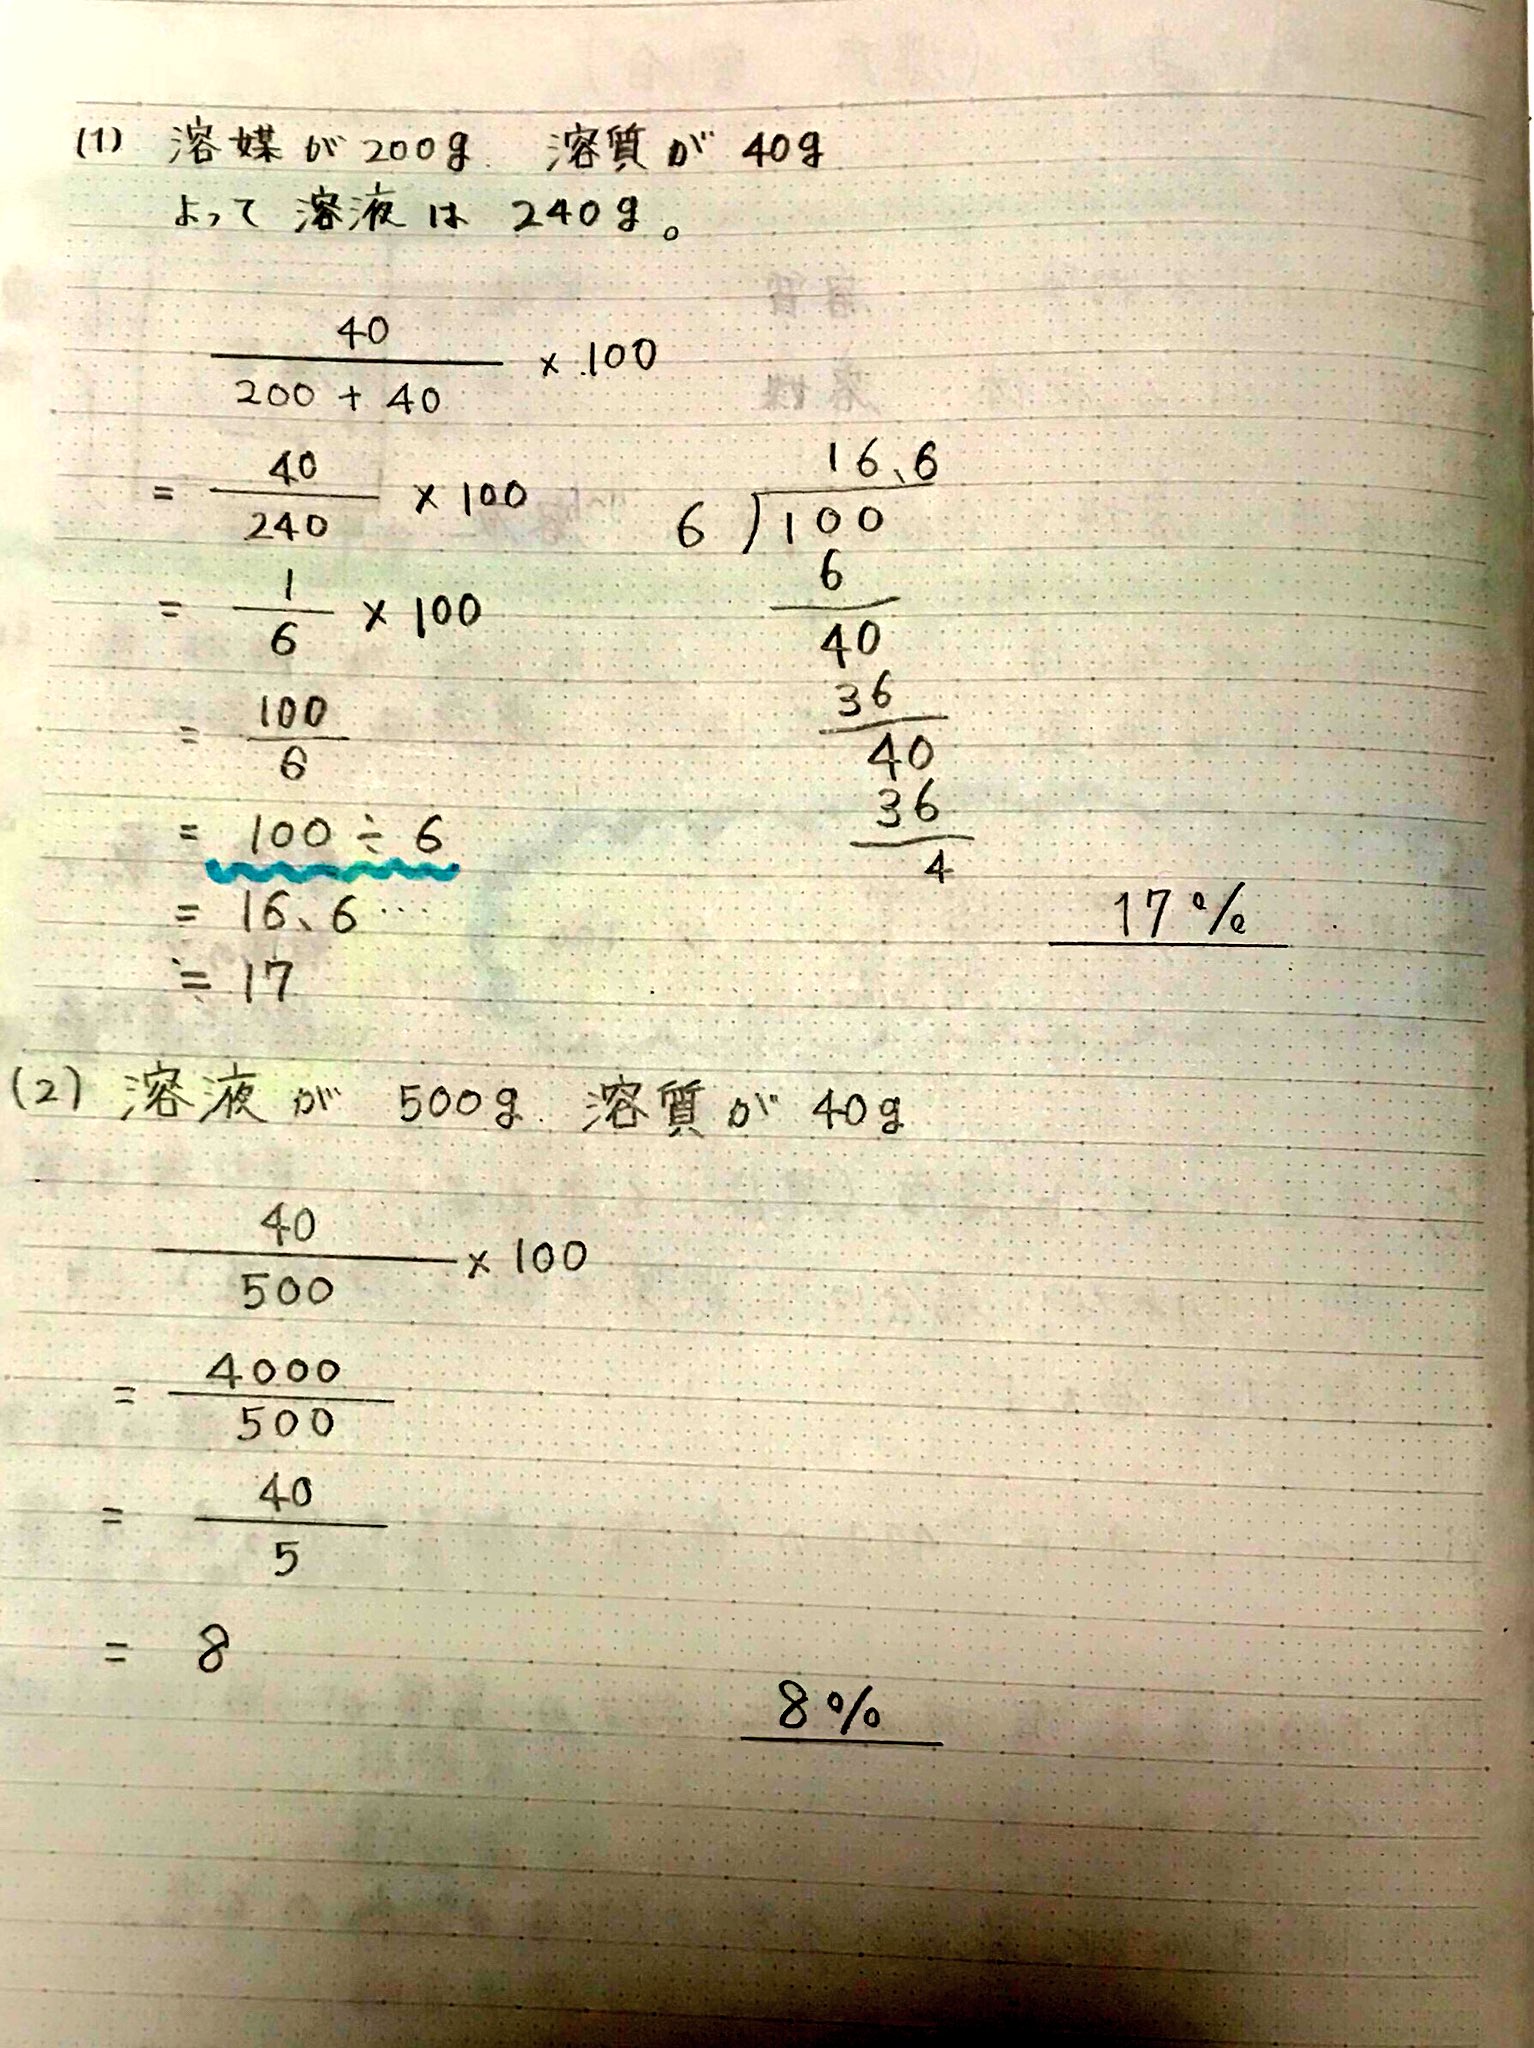 (1) 溶媒が200g. 溶質が40g
よって溶液は 240g。
40
200 + 40
× 100
= 40
240
× 100
= 1
6
× 100
= 100
6
= 100 ÷ 6
= 16、6…
≒ 17
16、6
6 ) 100
6
40
36
40
36
4
17%
(2) 溶液が 500g. 溶質が 40g
40
500
× 100
= 4000
500
= 40
5
= 8
8%